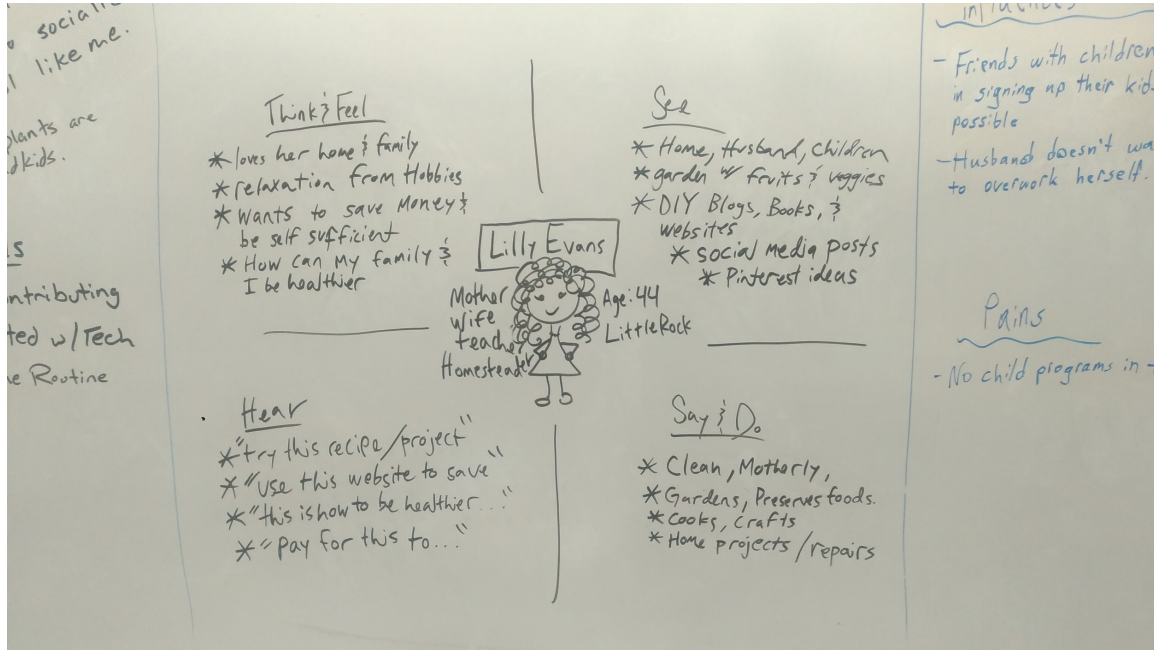 socializ
l like me.
plants are
dkids.
s
ontributing
ted w/Tech
e Routine
Think & Feel
* loves her home & family
* relaxation from Hobbies
* Wants to save Money &
be self sufficient
* How can my family &
I be healthier
See
* Home, Husband, Children
* garden w/ fruits & veggies
* DIY Blogs, Books, &
websites
* social media posts
* Pinterest ideas
Lilly Evans
Mother
Wife
teacher
Homesteader
Age: 44
Little Rock
Hear
* "try this recipe/project"
* "use this website to save"
* "this is how to be healthier..."
* "pay for this to..."
Say & Do.
* Clean, Motherly,
* Gardens, Preserves foods.
* Cooks, Crafts
* Home projects/repairs
- Friends with children
in signing up their kids
possible
- Husband doesn't wa
to overwork herself.
Pains
- No child programs in